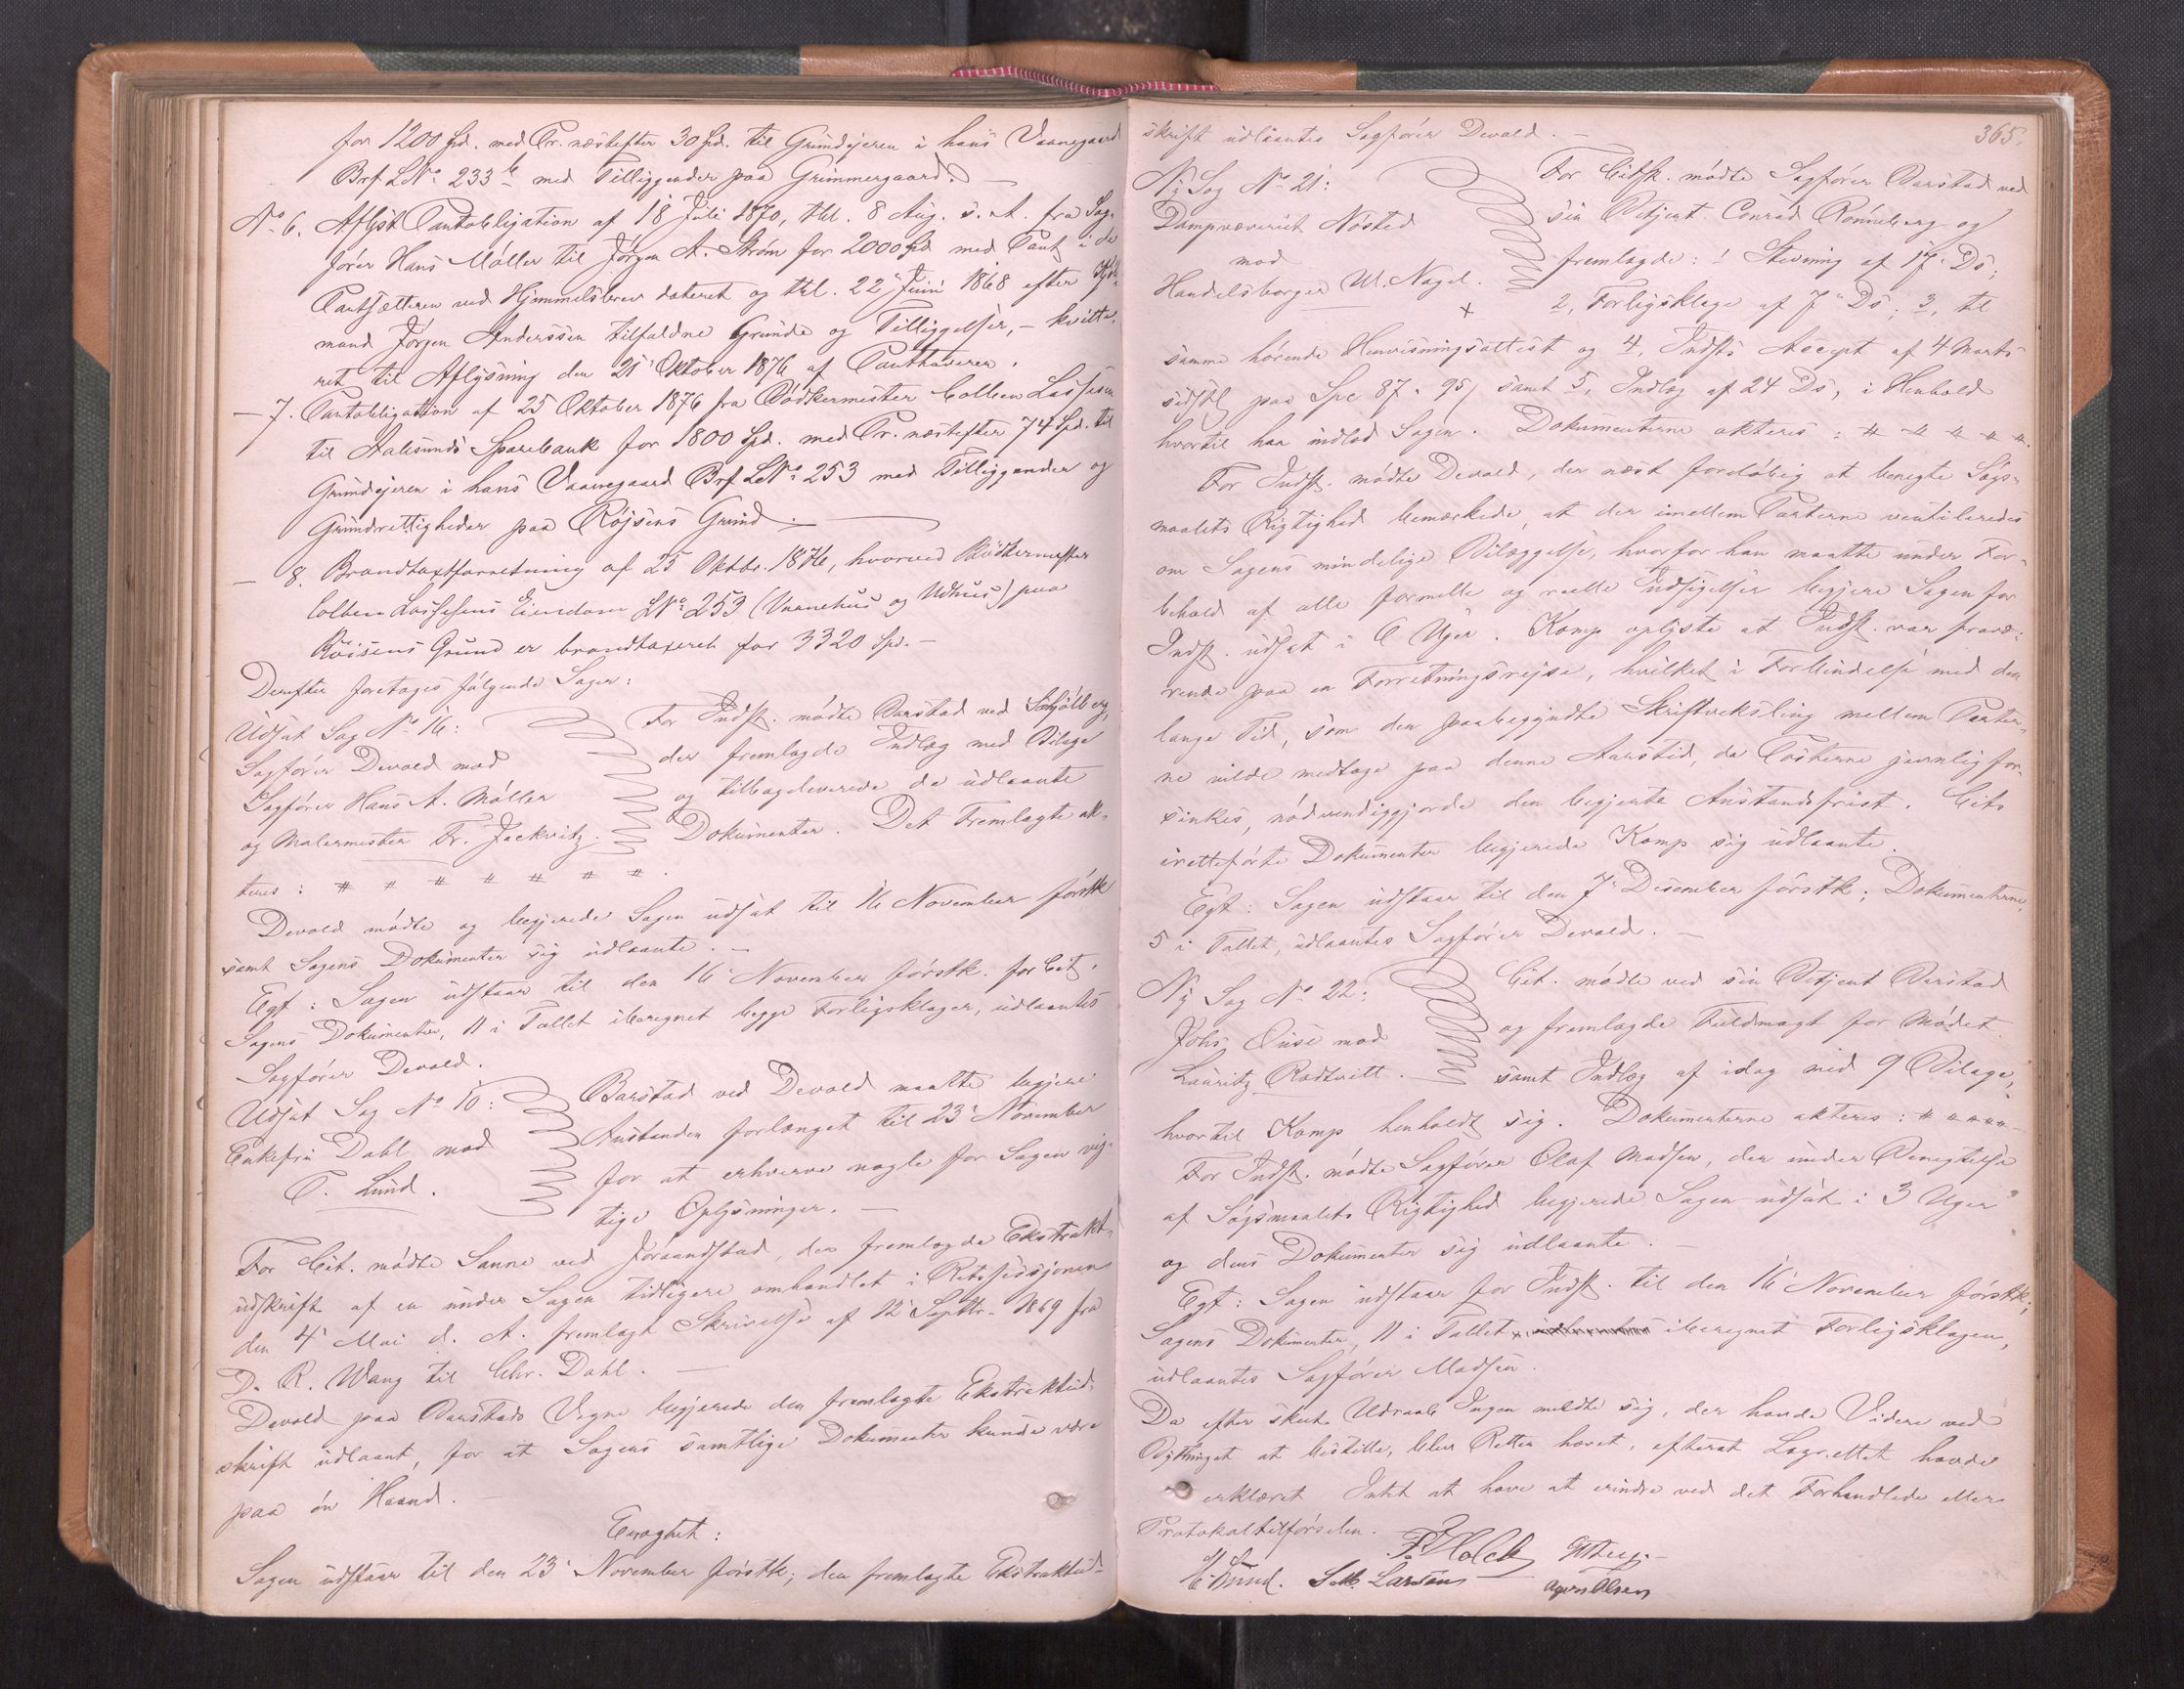 for 1200 Spd. med Pr. næstefter 30 Spd. til Grundejeren i hans Vaanegaard
Brf. LNo 233 b med Tilliggender paa Grimmergaard. —
No 6. Aflyst Pantobligation af 18 Juli 1870, thl. 8 Aug. s. A. fra Sag-
fører Hans Møller til Jørgen A. Strøm for 2000 Spd. med Pant i de
Pantsætteren ved Hjemmelsbrev dateret og thl. 22 Juni 1868 efter
mand Jørgen Anderssen tilfaldne Grunde og Tilliggelser, – kvitte-
ret til Aflysning den 21 Oktober 1876 af Panthaveren.
— 7. Pantobligation af 25 Oktober 1876 fra Bødkermester Colben Lassesen
til Aalesunds Sparebank for 1800 Spd. med Pr. næstefter 74 Spd. til
Grundejeren i hans Vaanegaard Brf. LNo 253 med Tilliggender og
Grundrettigheder paa Røjsens Grund. —
— 8. Brandtaxtforretning af 25 Oktbr. 1876, hvorved Bødkermester
Colben Lassesens Eiendom LNo 253 (Vaanehus og Udhus) paa
Røisens Grund er brandtaxeret for 3320 Spd. —
Derefter foretoges følgende Sager:
Udsat Sag No 16:
Sagfører Devold mod
Sagfører Hans A. Møller
og Malermester Fr. Jackwitz.
For Indst. mødte Barstad ved Schjølberg,
der fremlagde Indlæg med Bilage
og tilbageleverede de udlaante
Dokumenter. Det Fremlagte ak-
teres: # # # # # # #.
Devold mødte og begjerede Sagen udsat til 16 November førstk
samt Sagens Dokumenter sig udlaante. —
Egt: Sagen udstaar til den 16 November førstk. for Cit.
Sagens Dokumenter, 11 i Tallet iberegnet begge Forligsklager, udlaantes
Sagfører Devold.
Udsat Sag No 10:
Enkefru Dahl mod
P. Lund.
Barstad ved Devold maatte begjere
Anstanden forlænget til 23 November
for at erhverve nogle for Sagen vig-
tige Oplysninger. —
For Cit. mødte Sanne ved Joraandstad, der fremlagde Ekstrakt-
udskrift af en under Sagen tidligere omhandlet i Retssessjonen
den 4 Mai d. A. fremlagt Skrivelse af 12 Septbr. 1869 fra
D. R. Wang til Chr. Dahl. —
Devold paa Barstads Vegne begjerede den fremlagte Ekstraktud-
skrift udlaant, for at Sagens samtlige Dokumenter kunde være
paa én Haand. —
Eragtet:
Sagen udstaar til den 23 November førstk; den fremlagte Ekstraktud-
365.
skrift udlaantes Sagfører Devold. —
Ny Sag No 21:
Dampvæveriet Nøsted
mod
Handelsborger W. Nagel.
For Citsk. mødte Sagfører Barstad ved
sin Betjent Conrad Rønneberg og
fremlagde: 1 Stevning af 17 Ds;
2, Forligsklage af 7 Ds; 3, til
samme hørende Henvisningsattest og 4, Indsts Accept af 4 Marts
sidstl. paa Spc 87. 95/ samt 5, Indlæg af 24 Ds, i Henhold
hvortil han indlod Sagen. Dokumenterne akteres: # # # # #.
For Indst. mødte Devold, der næst foreløbig at benegte Søgs-
maalets Rigtighed bemærkede, at der imellem Parterne ventileredes
om Sagens mindelige Bilæggelse, hvorfor han maatte under For-
behold af alle formelle og reelle Indsigelser begjere Sagen for
Indst. udsat i 6 Uger. Komp oplyste at Indst. var fravæ-
rende paa en Forretningsrejse, hvilket i Forbindelse med den
lange Tid, som den paabegyndte Skriftveksling mellem Parter-
ne vilde medtage paa denne Aarstid, da Posterne jævnlig for-
sinkes, nødvendiggjorde den begjerte Anstandsfrist. Cits
iretteførte Dokumenter begjerede Komp sig udlaante.
Egt: Sagen udstaar til den 7 Desember førstk; Dokumenterne,
5 i Tallet, udlaantes Sagfører Devold. —
Ny Sag No 22:
Johs. Buse mod
Lauritz Rødtvitt.
Cit. mødte ved sin Betjent Barstad
og fremlagde Fuldmagt for Mødet
samt Indlæg af idag med 9 Bilage,
hvortil Komp henholdt sig. Dokumenterne akteres: # # # # #
For Indst. mødte Sagfører Olaf Madsen, der under Benegtelse
af Søgsmaalets Rigtighed begjerede Sagen udsat i 3 Uger
og dens Dokumenter sig udlaante. —
Egt: Sagen udstaar for Indst. til den 16 November førstk;
Sagens Dokumenter, 11 i Tallet iberegnet Forligsklagen,
udlaantes Sagfører Madsen.
Da efter skeet Udraab Ingen meldte sig, der havde Videre ved
Bythinget at bestille, blev Retten hævet, efterat Lagrettet havde
erklæret Intet at have at erindre ved det Forhandlede eller
Protokoltilførselen.
F. Holck
E. Lund. S. M. Larsen Olsen